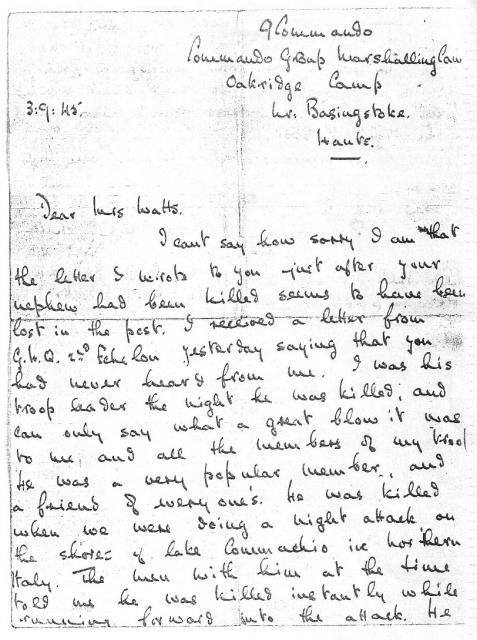 9 Commando
Commando Group Marshalling Cam
Oakridge Camp
3.9.45. Nr. Basingstoke.
Hants.
Dear Mrs Watts.
I cant say how sorry I am that
the letter I wrote to you just after your
nephew had been killed seems to have been
lost in the post. I received a letter from
G.H.Q. 2nd Echelon yesterday saying that you
had never heard from me. I was his
troop leader the night he was killed, and
can only say what a great blow it was
to me, and all the members of my troop
He was a very popular member, and
a friend of every one's. He was killed
when we were doing a night attack on
the shores of lake Commachio in northern
Italy. The men with him at the time
told me he was killed instantly while
running forward into the attack. He